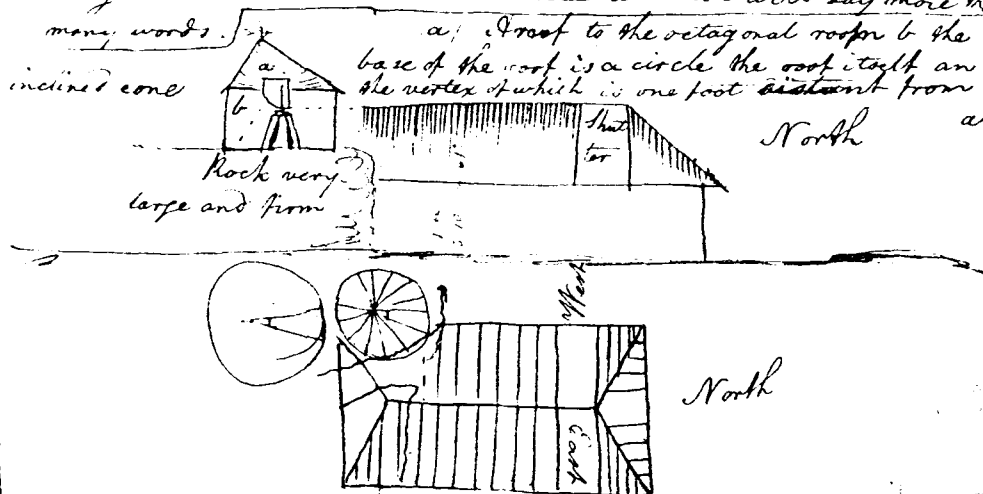 say more
many words.
a, A roof to the octagonal room b the
base of the roof is a circle the roof itself an
inclined cone
the vertex of which is one foot distant from
a
a
b
Shut
ter
North
Rock very
large and firm
West
North
East